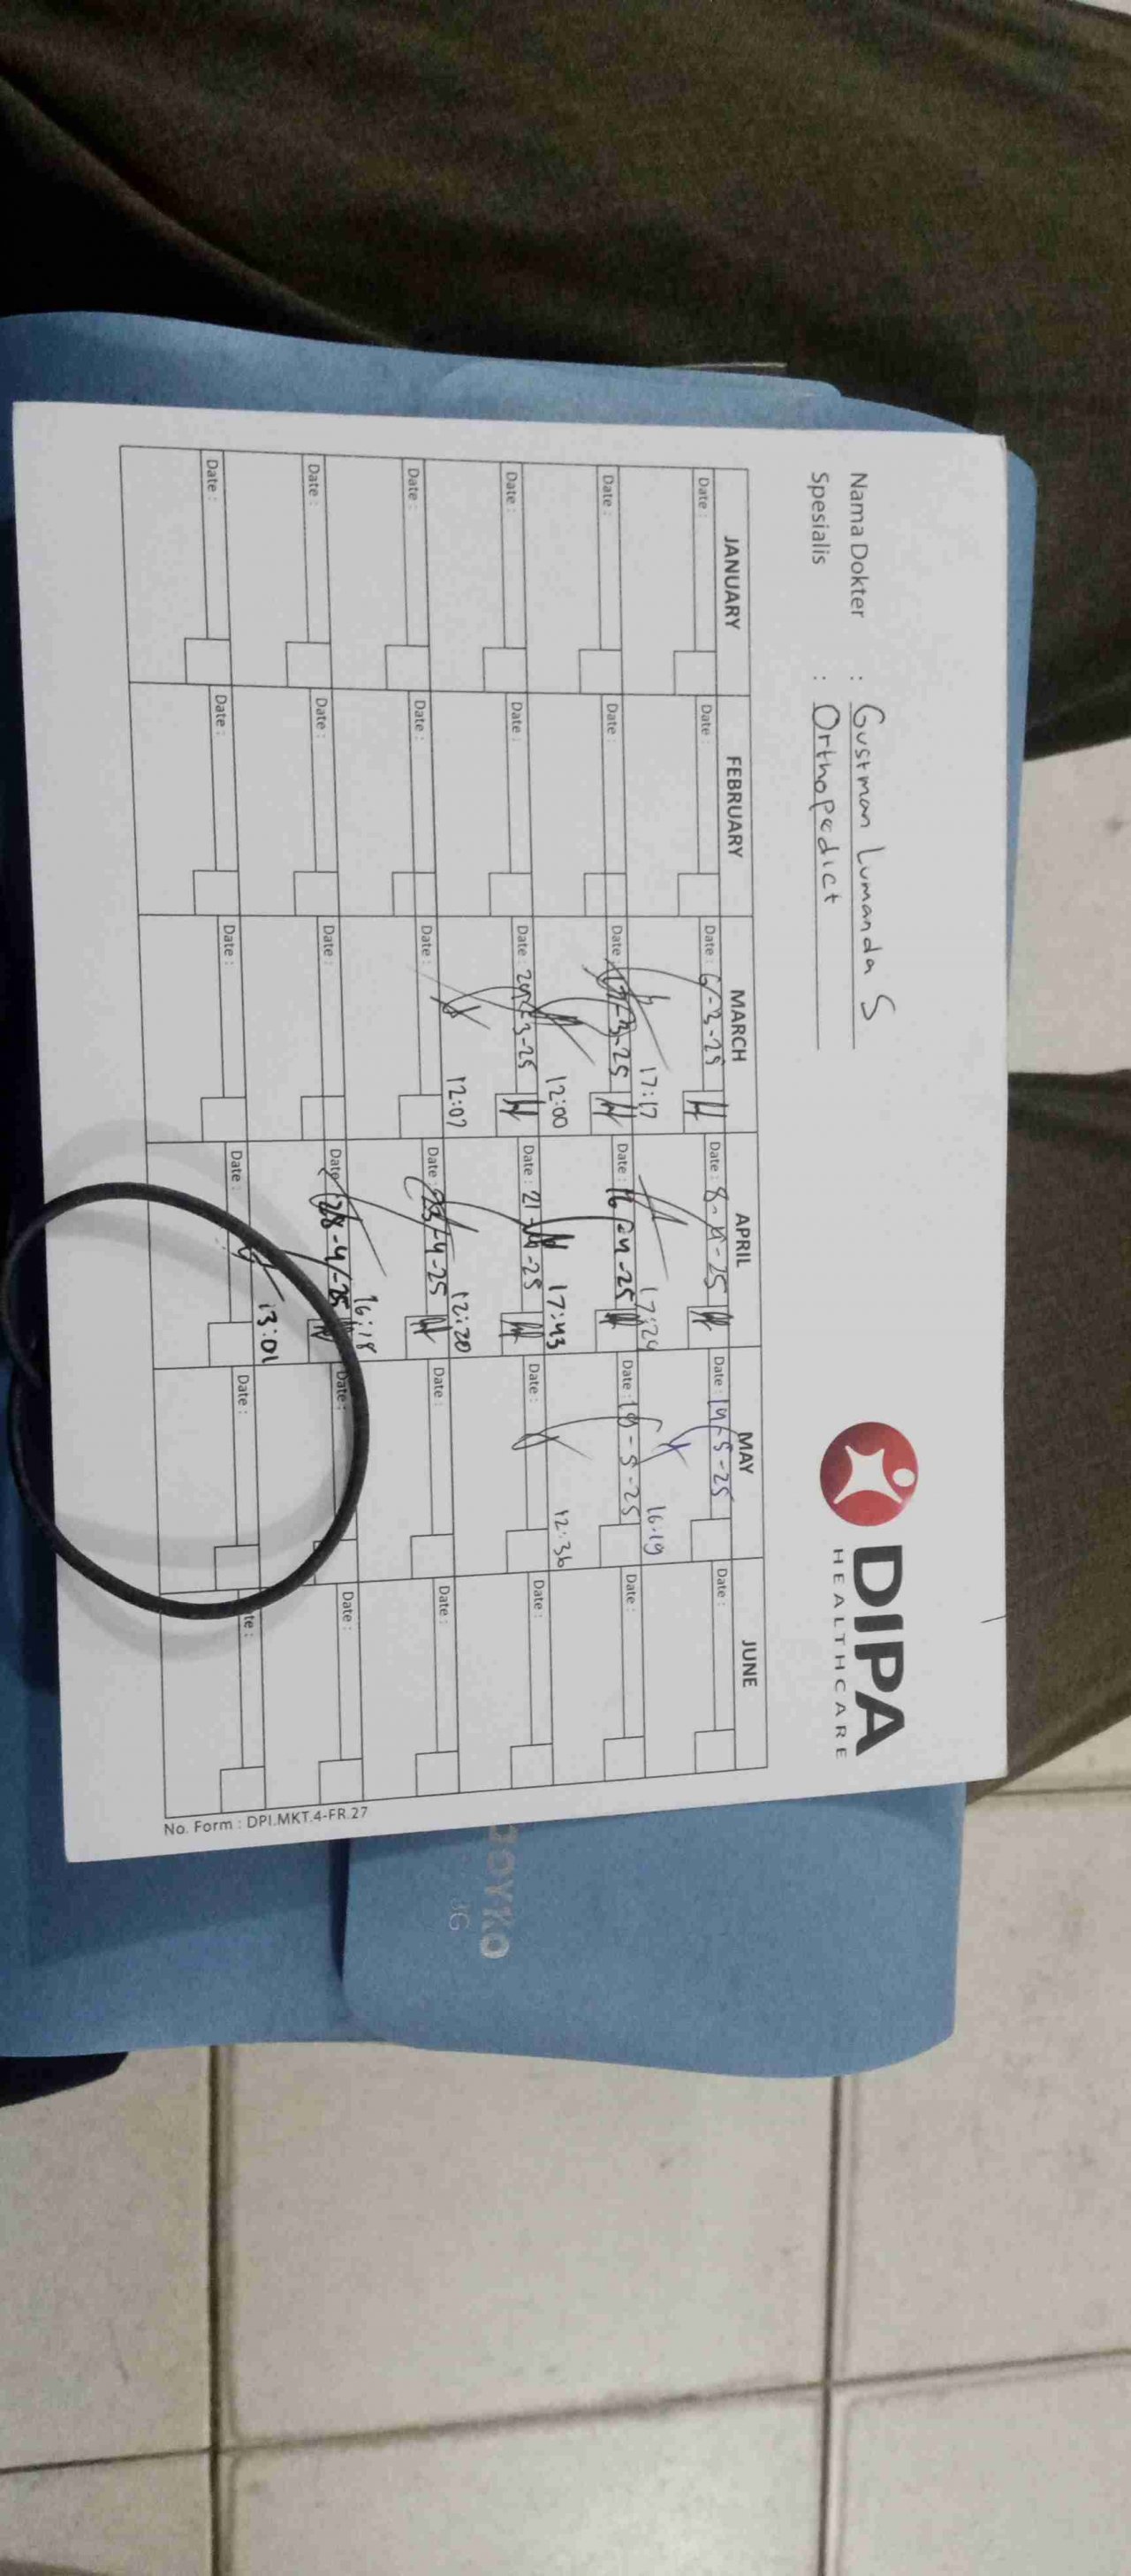 DIPA
HEALTHCARE
Nama Dokter : Gustman Lumanda S
Spesialis : Orthopedict
JANUARY FEBRUARY MARCH APRIL MAY JUNE
Date : Date : Date : 6-3-25 Date : 8-4-25 Date : 14-5-25 Date :
17:17 17:24 16:19
Date : Date : Date : 17-3-25 Date : 16-4-25 Date : 19-5-25 Date :
12:00 17:43 12:36
Date : Date : Date : 20-3-25 Date : 21-4-25 Date : Date :
12:07 12:20
Date : Date : Date : Date : 23-4-25 Date : Date :
16:18
Date : Date : Date : Date : 28-4-25 Date : Date :
13:01
Date : Date : Date : Date : Date : te :
No. Form : DPI.MKT.4-FR.27
JOYKO